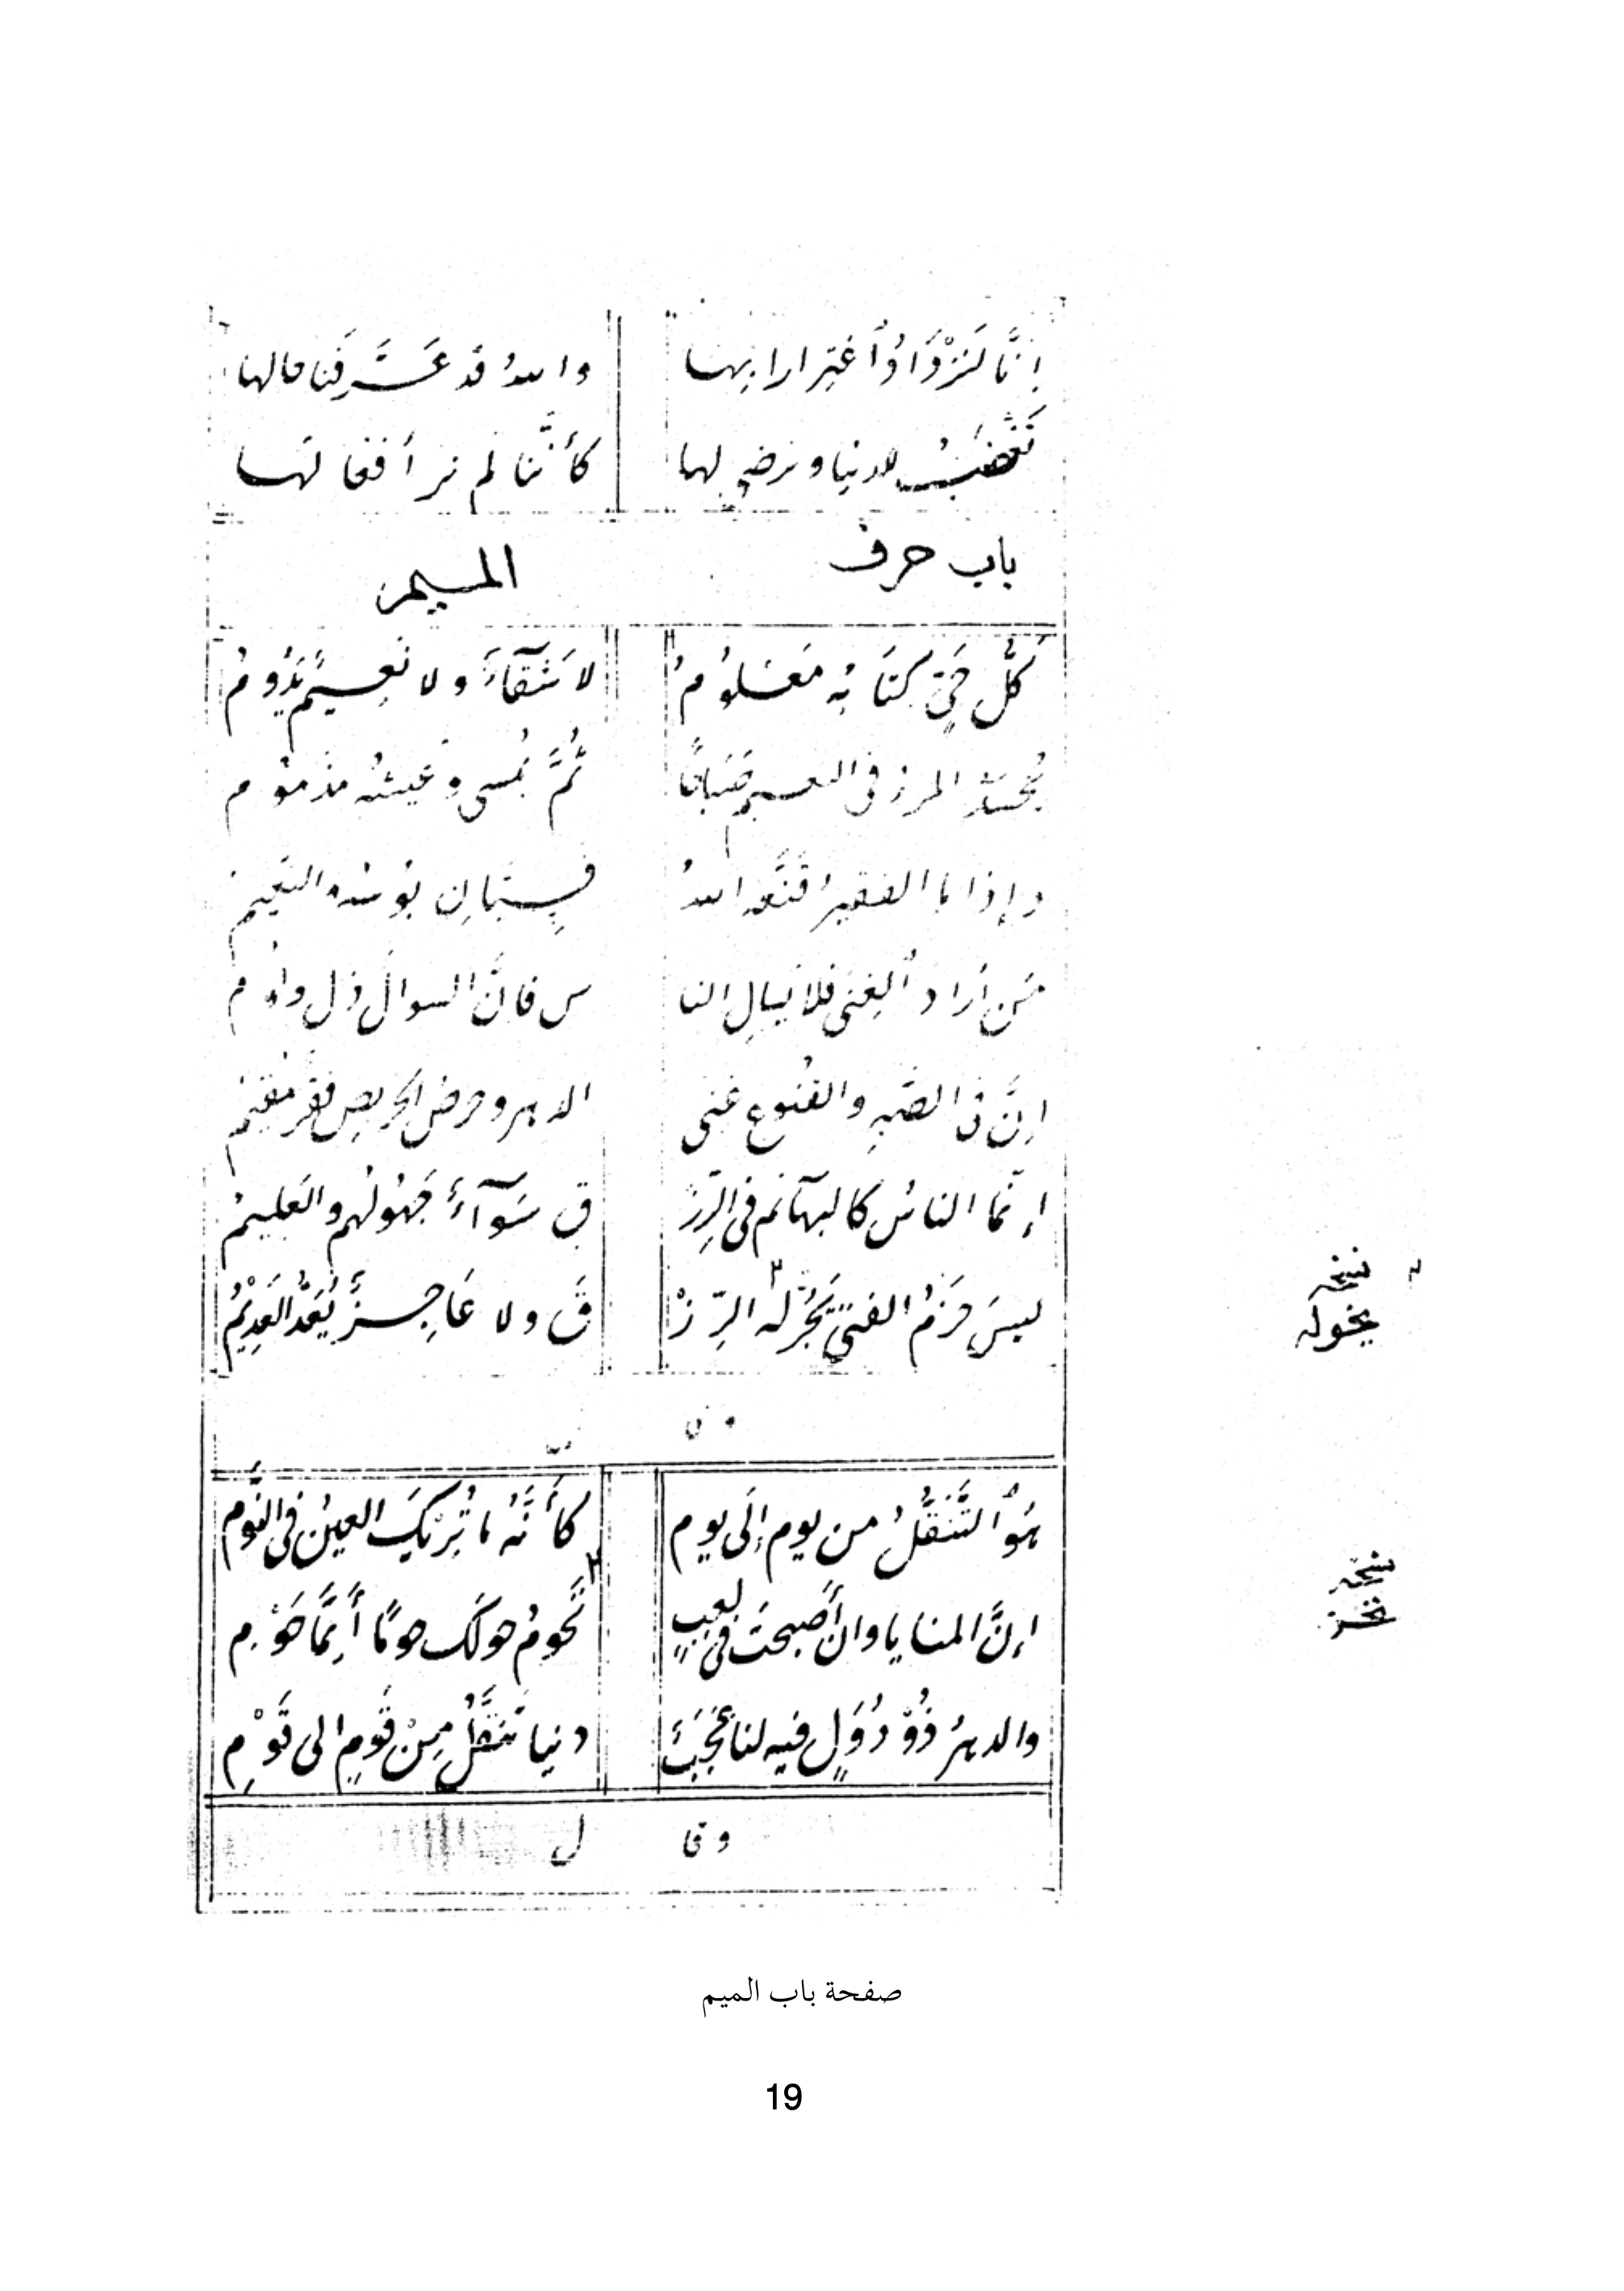 إنَّا لَنَزْدَادُ اُغتِرارا بها والله قد عَرَّفنا مالها
نَغْضَبُ للدنيا ونرضى لها كأنَّنا لم نر أفعالَها
باب حرف الميم
كلُّ حَيٍّ كِتَابُه مَعْلُومُ لا شَقَآءٌ ولا نَعِيمٌ يَدُومُ
يُحْسَدُ المرءُ في النعيم صَبَاحًا ثُمَّ يُمسى وعَيشُه مذموم
وإذا ما الفقيرُ قَنَّعَه اللهُ فسِيَّانِ بؤسُه والنعيمُ
مَن أراد الغِنَى فلا يَسالِ النا س فانَّ السوالَ ذل ولوم
إنَّ في الصَّبرِ والقُنوع غِنى الدهر وحرصُ الحريصِ فقرٌ مُقيمُ
إنّما الناسُ كالبهآئم في الرِّزْ قِ سَوَآءٌ جَهُولُهُم والعَليمُ
ليسَ حَزْمُ الفتى يَجُرُّ له الرِّزْ قَ ولا عَاجِزٌ يُعَدُّ العَدِيْمُ
نسخه
يحوله
هُوَ اُلتَّنَقُّلُ من يوم إلَى يوم كأنَّه ما تُرِيْكَ العينُ في النَّوم
إنَّ المنايا وان أَصبحتَ في لعبٍ تَحُومُ حولَكَ حومًا أَيَّمَا حَوْمِ
نسخه
والدهرُ ذُوْ دُوَلٍ فيه لنا عَجَبٌ دنيا تَنَقَّلُ مِنْ قَومٍ الى قَوْمِ
وقا ل
صفحة باب الميم
19